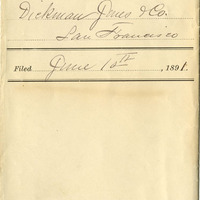 Dickman Jones & Co.
San Francisco
Filed June 10th, 1891.